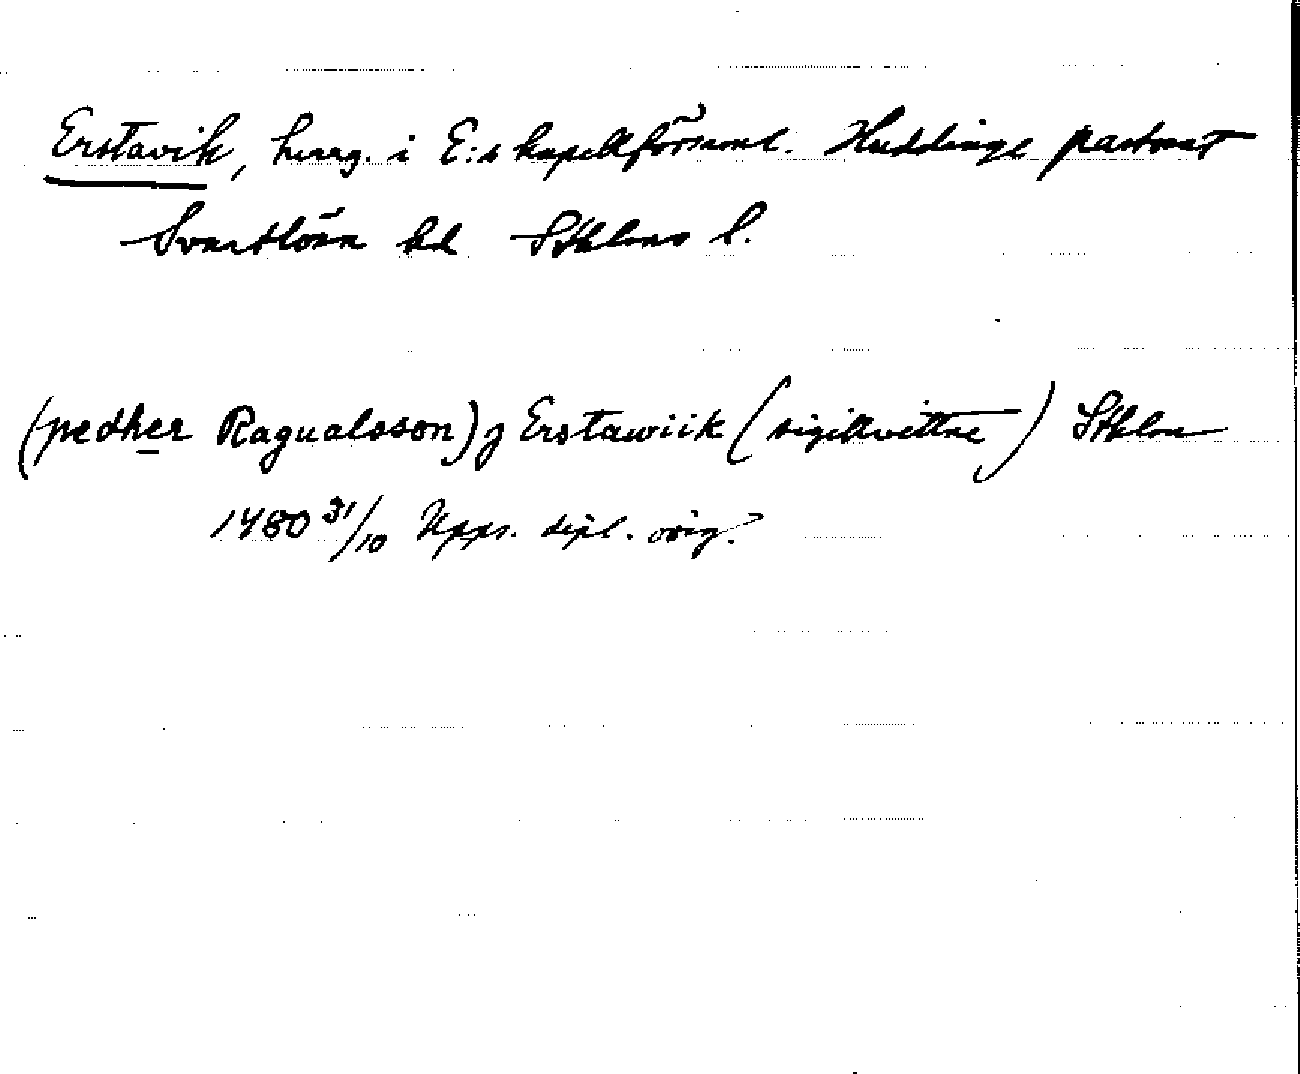 Erstavik, herrg. i E:s kapellförsaml. Huddinge pastorat
Svartlösa hd Sthlms l.
(pedher Ragualsson) j Erstawiik (sigillvittne) Sthlm
1480 31/10 Upps. dipl. orig.